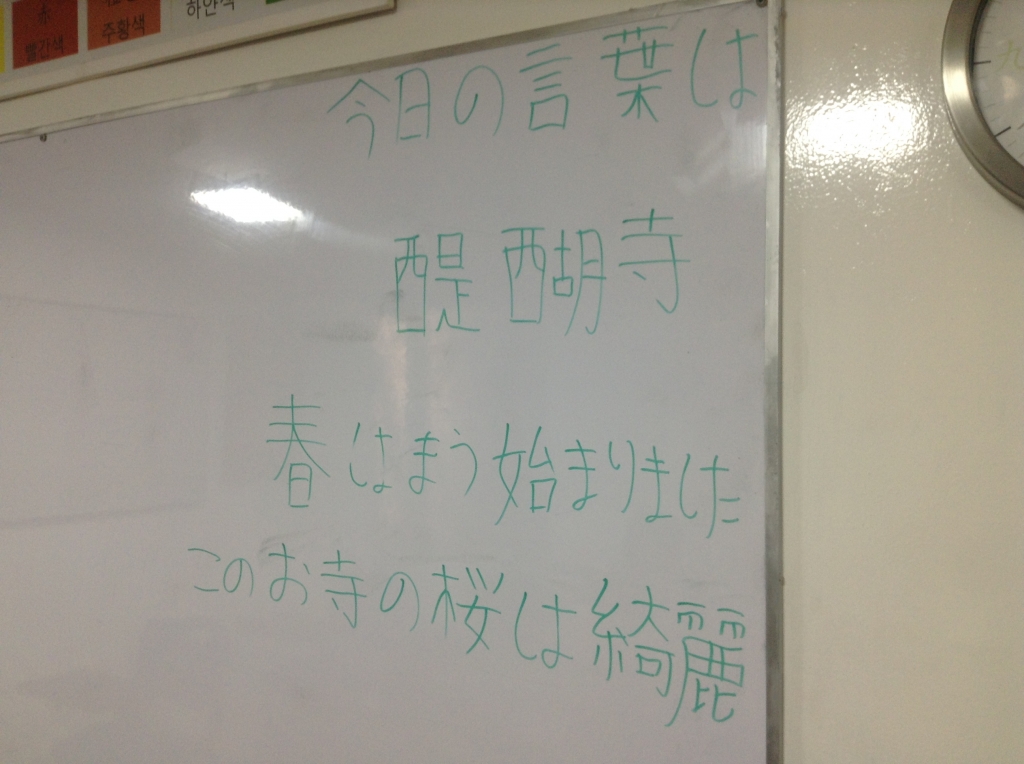 赤 하얀색
빨간색 주황색
今日の言葉は
醍醐寺
春はまう始まりました
このお寺の桜は綺麗